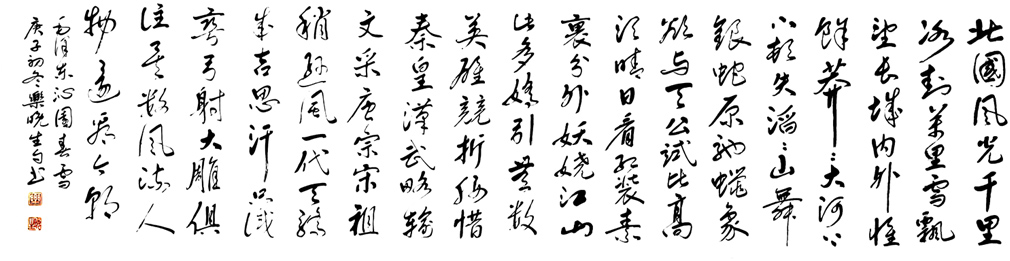 北國風光千里
冰封萬里雪飄
望長城内外惟
餘莽〻大河上
下頓失滔〻山舞
銀蛇原馳蠟象
欲与天公試比高
須晴日看紅裝素
裹分外妖嬈江山
此多嬌引無数
英雄競折腰惜
秦皇漢武略輸
文采唐宗宋祖
稍遜風一代天驕
成吉思汗只識
彎弓射大雕俱
往矣数風流人
物還看今朝
毛澤东沁園春雪
庚子初冬樂晓生书